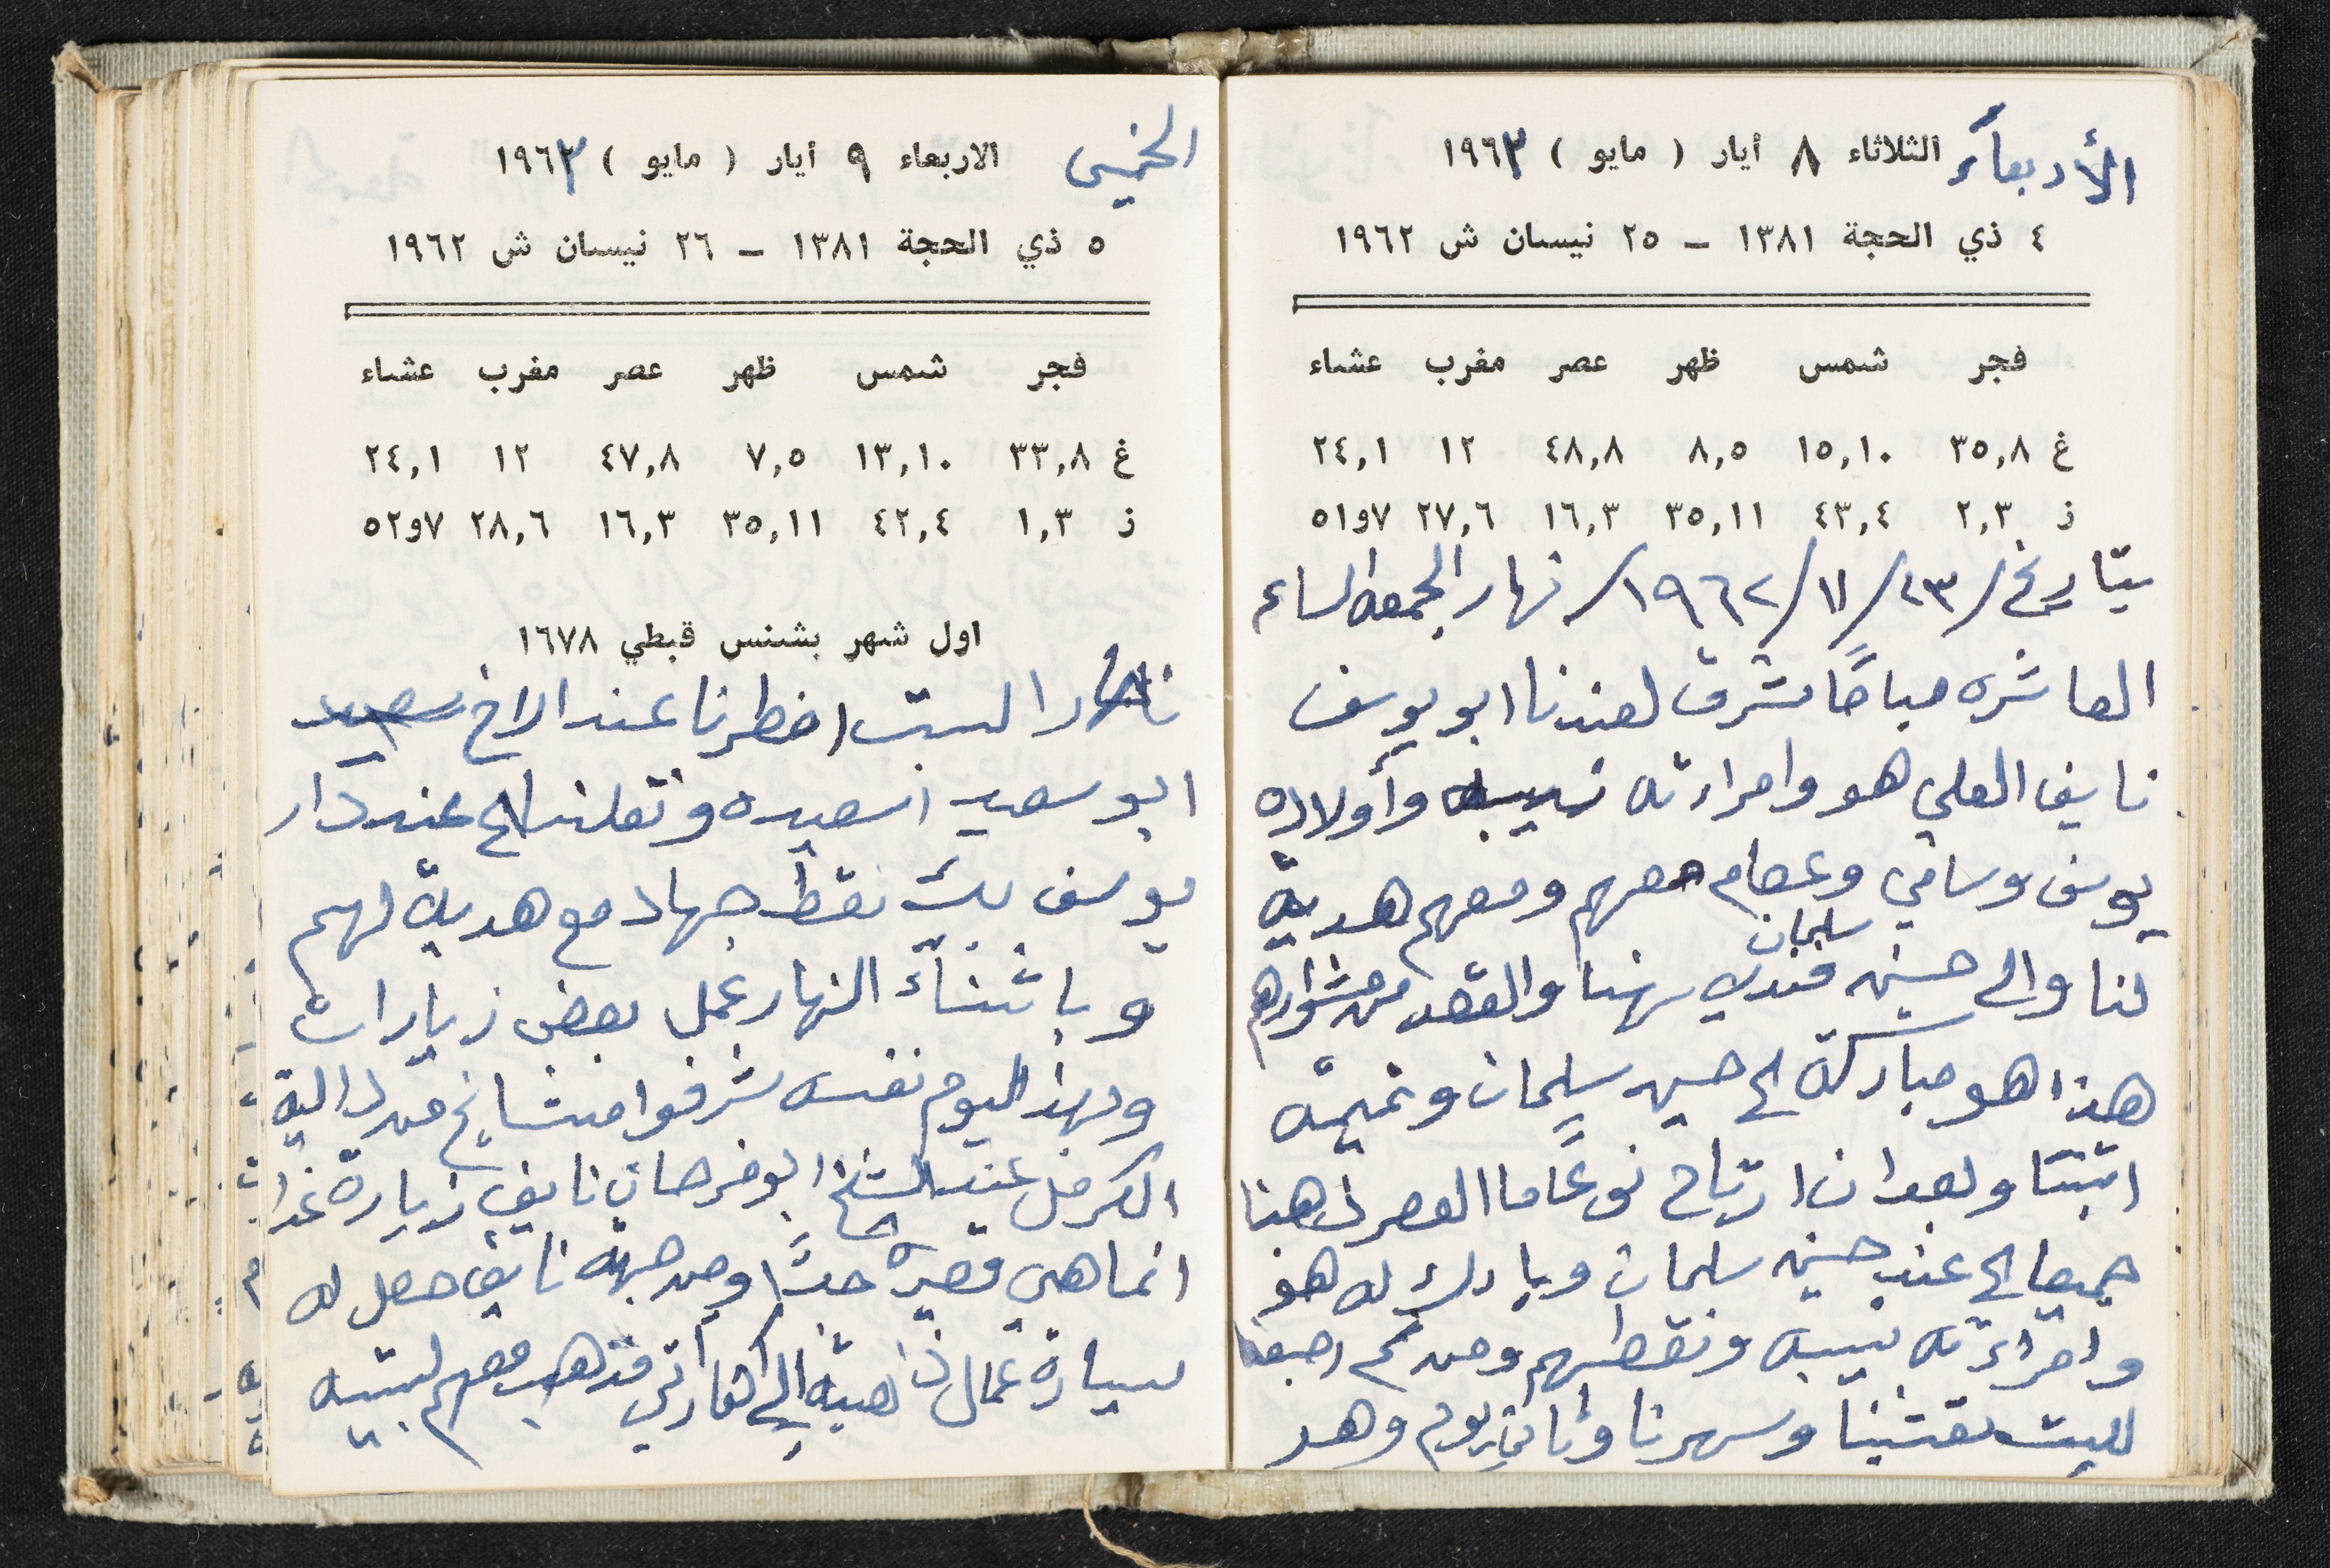 الأربعاء الثلاثاء ٨ أيار ( مايو ) ١٩٦٣
٤ ذي الحجة ١٣٨١ - ٢٥ نيسان ش ١٩٦٢
فجر شمس ظهر عصر مغرب عشاء
غ ٣٥,٨ ١٥,١٠ ٨,٥ ٤٨,٨ ١٢ ٢٤,١
ز ٢,٣ ٤٣,٤ ٣٥,١١ ١٦,٣ ٢٧,٦ ٧و٥١
بتاريخ /٢٣/ ١١/ ١٩٦٢/ نهار الجمعه الساعه
العاشره صباحًا تشرف لعندنا ابو يوسف
نايف العلي هو وامراءته نسيبه وأولاده
يوسف وسامي وعصام معهم ومعهم هدية
سلمان
لنا والى حسين فندي بهنا والقصد من مشوارهم
هذا هو مباركة الى حسين سليمان وتميمه
ابنتنا وبعد ان ارتاح نوعًا ما العصر ذهبنا
جميعا الى عند حسين سلمان وبارك له هو
وامراءته نسيبه ونقطهم ومن ثم رجعنا
للبيت تعشينا وسهرنا وثاني يوم وهو
الخميس الاربعاء ٩ أيار ( مايو ) ١٩٦٣
٥ ذي الحجة ١٣٨١ - ٢٦ نيسان ش ١٩٦٢
فجر شمس ظهر عصر مغرب عشاء
غ ٣٣,٨ ١٣,١٠ ٧,٥ ٤٧,٨ ١٢ ٢٤,١
ز ١,٣ ٤٢,٤ ٣٥,١١ ١٦,٣ ٢٨,٦ ٧و٥٢
اول شهر بشنس قبطي ١٦٧٨
نهار السبت افطرنا عند الاخ سعيد
ابو سعيد اسعيده ونقلنا الى عند دار
يوسف بك نقط جهاد مع هدية لهم
وباثناء النهار عمل بعض زيارات
وبهذا اليوم نفسه شرفوا مشايخ من دالية
الكرمل عند الشيخ ابو فرحان نايف زيارة غدا
انما هي قصيره جدًا ومن جهة نايف حصل له
سيارة عمال ذاهبة الى اكفارتي فذهب معهم لبيته